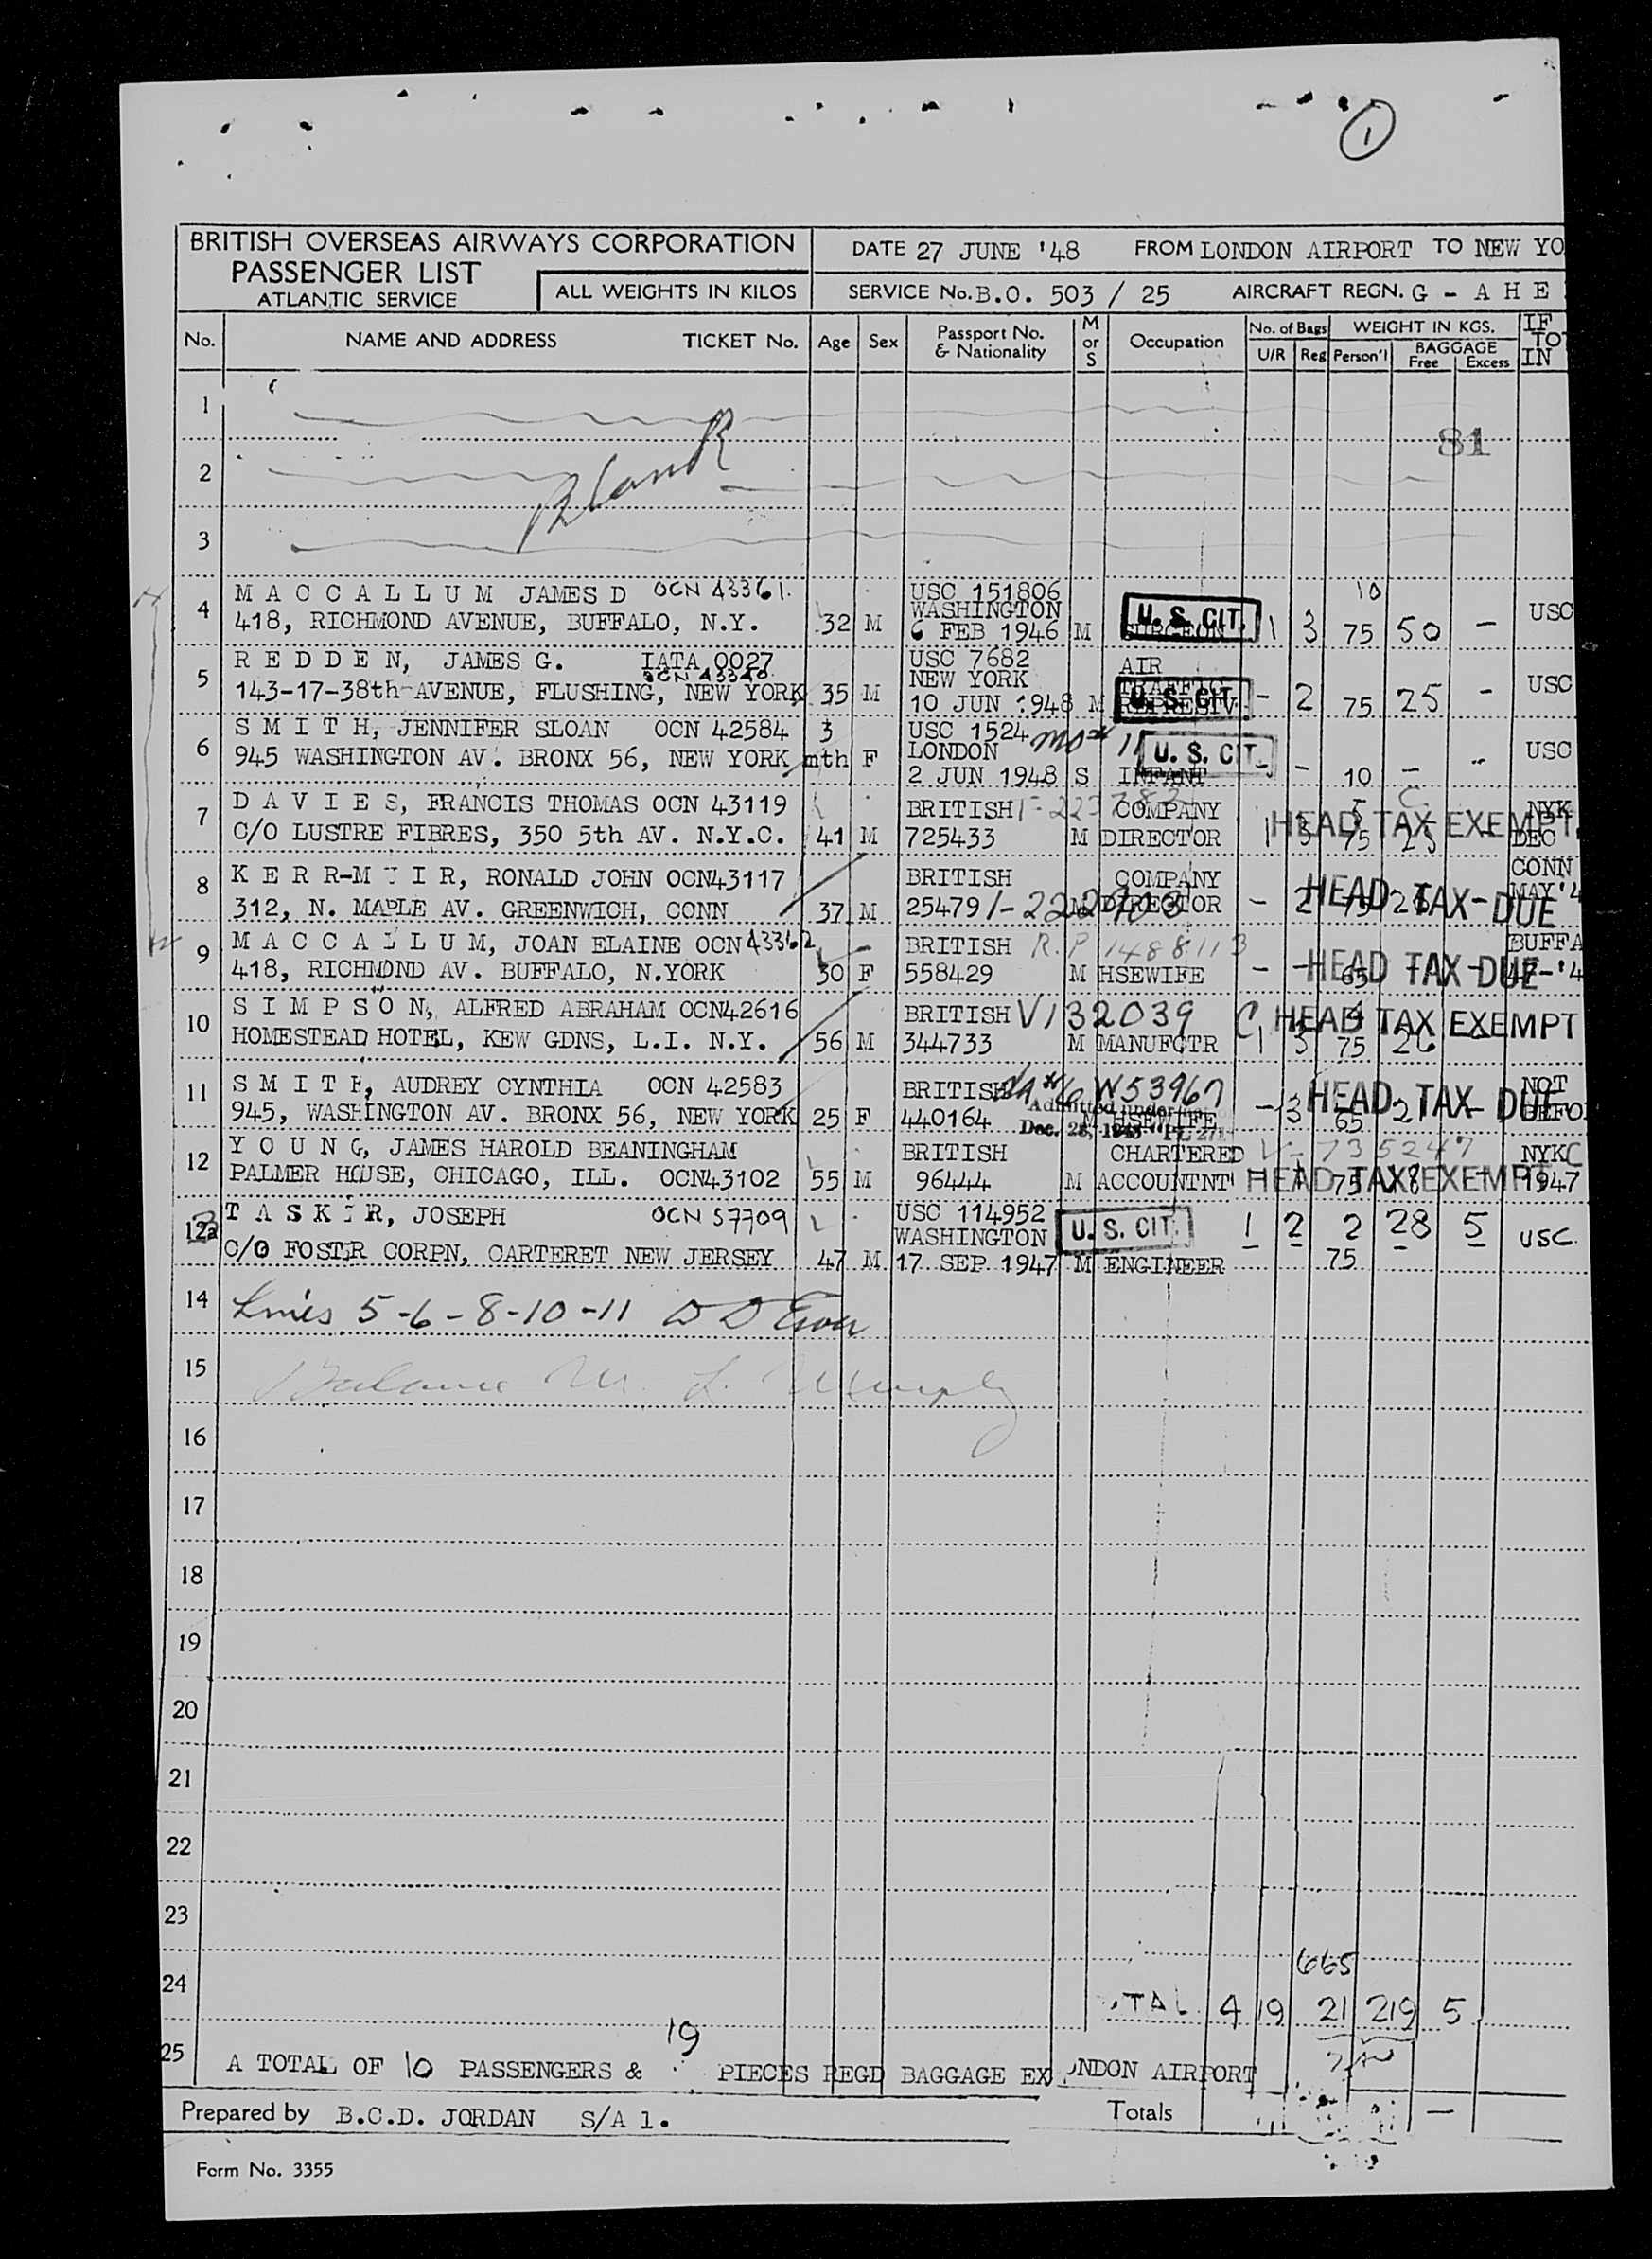 1
BRITISH OVERSEAS AIRWAYS CORPORATION
PASSENGER LIST
ATLANTIC SERVICE
ALL WEIGHTS IN KILOS
DATE 27 JUNE '48 FROM LONDON AIRPORT TO NEW YO
SERVICE No. B.O. 503 / 25 AIRCRAFT REGN. G - A H E
No. NAME AND ADDRESS TICKET No. Age Sex Passport No. & Nationality M or S Occupation No. of Bags U/R Reg WEIGHT IN KGS. Person'l BAGGAGE Free Excess IF TO IN
1
81
2 Blank
3
4 M A C C A L L U M JAMES D OCN 43361. USC 151806 10
418, RICHMOND AVENUE, BUFFALO, N.Y. 32 M WASHINGTON U.S. CIT. 1 3 75 50 - USC
6 FEB 1946 M SURGEON
5 R E D D E N, JAMES G. IATA 0027 USC 7682 AIR
OCN 43340
143-17-38th AVENUE, FLUSHING, NEW YORK 35 M NEW YORK TRAFFIC U.S. CIT. - 2 75 25 - USC
10 JUN 1948 M
6 S M I T H, JENNIFER SLOAN OCN 42584 3 USC 1524
945 WASHINGTON AV. BRONX 56, NEW YORK mth F LONDON U.S. CIT. - - 10 - USC
2 JUN 1948 S INFANT
7 D A V I E S, FRANCIS THOMAS OCN 43119 BRITISH COMPANY NYK
C/O LUSTRE FIBRES, 350 5th AV. N.Y.C. 41 M 725433 M DIRECTOR 1 3 75 25 HEAD TAX EXEMPT DEC
8 K E R R-M I R, RONALD JOHN OCN43117 BRITISH COMPANY CONN
312, N. MAPLE AV. GREENWICH, CONN 37 M 25479 1-222903 M DIRECTOR - 2 75 HEAD TAX-DUE MAY '4
9 M A C C A L L U M, JOAN ELAINE OCN 43362 BRITISH R.P 1488113 BUFFA
418, RICHMOND AV. BUFFALO, N.YORK 30 F 558429 M HSEWIFE - - 65 HEAD TAX-DUE - '4
10 S I M P S O N, ALFRED ABRAHAM OCN42616 BRITISH V132039 C HEAD TAX EXEMPT
HOMESTEAD HOTEL, KEW GDNS, L.I. N.Y. 56 M 344733 M MANUFCTR 1 3 75
11 S M I T H, AUDREY CYNTHIA OCN 42583 BRITISH W53967 HEAD TAX DUE NOT
945, WASHINGTON AV. BRONX 56, NEW YORK 25 F 440164 Admitted under M HSEWIFE - 3 65 BEFO
Dec. 28, 1945
12 Y O U N G, JAMES HAROLD BEANINGHAM BRITISH CHARTERED V-735247 NYKC
PALMER HOUSE, CHICAGO, ILL. OCN43102 55 M 96444 M ACCOUNTNT HEAD TAX EXEMPT 75 1947
12a T A S K E R, JOSEPH OCN 57709 USC 114952 1 2 2 28 5 USC.
WASHINGTON U.S. CIT.
C/O FOSTER CORPN, CARTERET NEW JERSEY 47 M 17 SEP 1947 M ENGINEER 75
14 Lines 5-6-8-10-11
15 Balance M. L. Murphy
16
17
18
19
20
21
22
23
665
24 TOTAL 4 19 21 219 5
19
25 A TOTAL OF 10 PASSENGERS & PIECES REGD BAGGAGE EX LONDON AIRPORT
Prepared by B.C.D. JORDAN S/A 1. Totals -
Form No. 3355